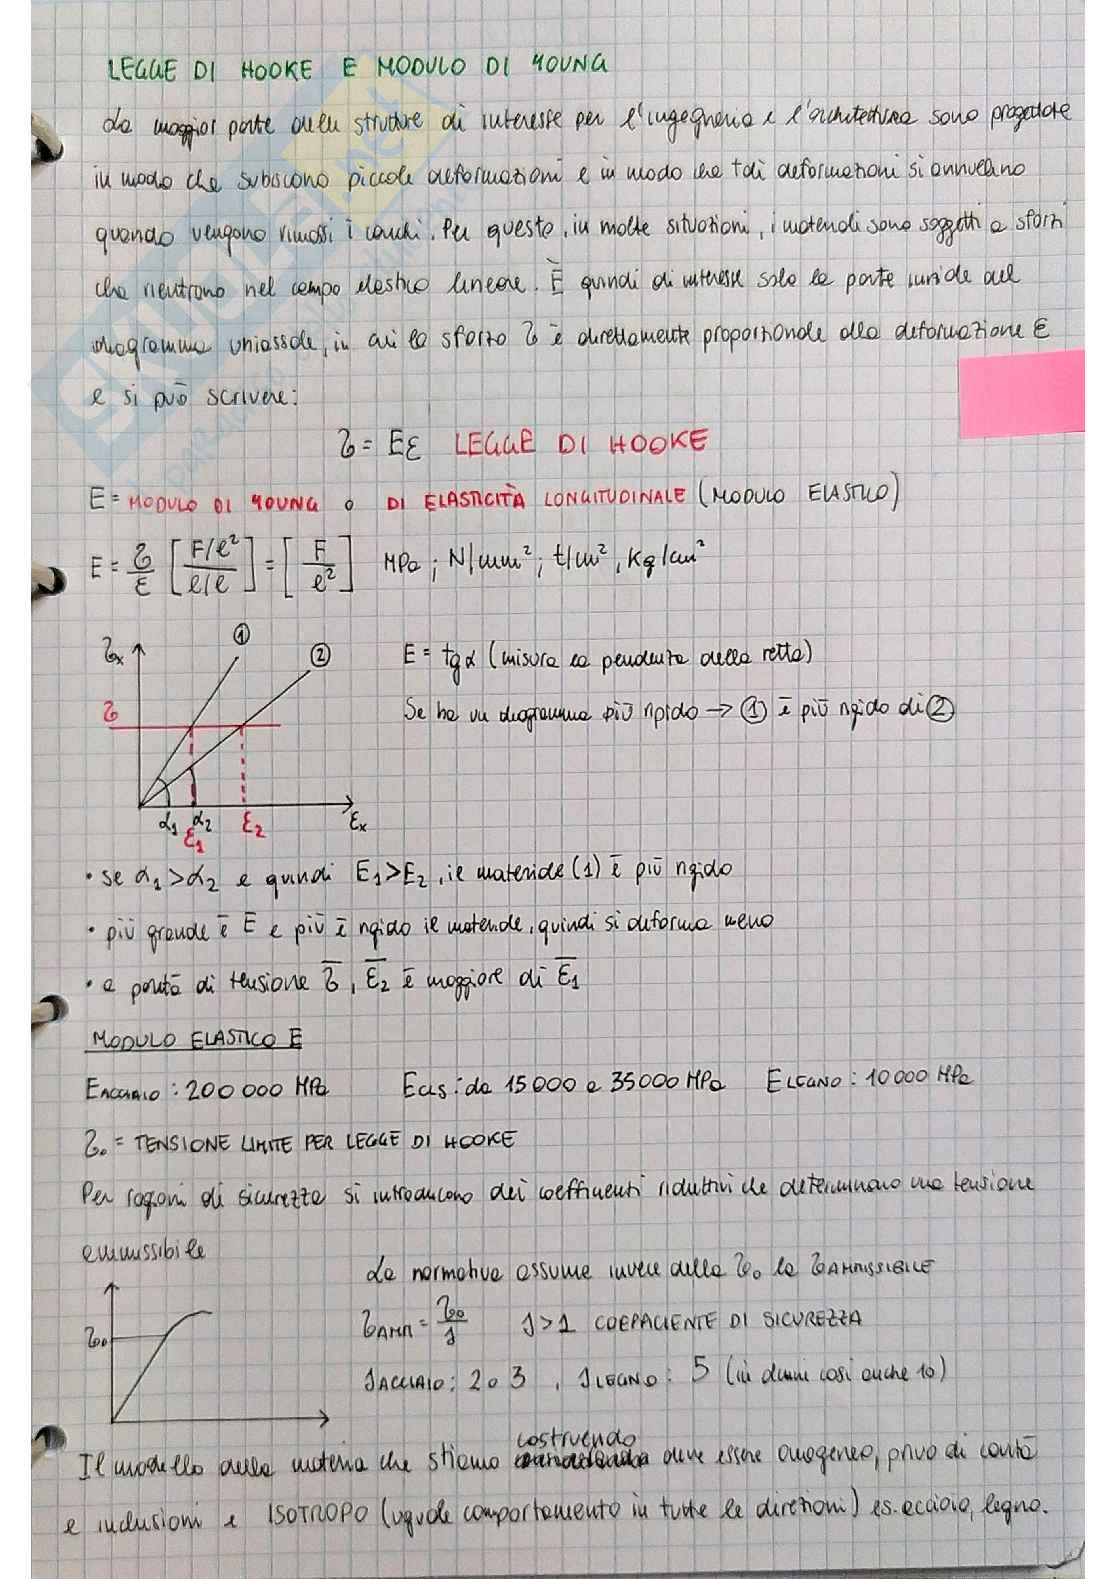 LEGGE DI HOOKE E MODULO DI YOUNG
La maggior parte delle strutture di interesse per l'ingegneria e l'architettura sono progettate
in modo che subiscano piccole deformazioni e in modo che tali deformazioni si annullano
quando vengono rimossi i carichi. Per questo, in molte situazioni, i materiali sono soggetti a sforzi
che rientrano nel campo elastico lineare. È quindi di interesse solo la parte iniziale del
diagramma uniassale, in cui lo sforzo σ è direttamente proporzionale alla deformazione ε
e si può scrivere:
σ = Eε LEGGE DI HOOKE
E = MODULO DI YOUNG o DI ELASTICITÀ LONGITUDINALE (MODULO ELASTICO)
E = σ/ε [F/l²/l/l] = [F/l²] MPa ; N/mm² ; t/m² , Kg/cm²
σx ① ②
E = tgα (misura la pendenza della retta)
σ
Se ho un diagramma più ripido → ① è più rigido di ②
α1 α2 εx
ε1 ε2
• se α1 > α2 e quindi E1 > E2, il materiale (1) è più rigido
• più grande è E e più è rigido il materiale, quindi si deforma meno
• a parità di tensione σ̄, ε̄2 è maggiore di ε̄1
MODULO ELASTICO E
EACCIAIO : 200 000 MPa Ecls : da 15 000 a 35000 MPa ELEGNO : 10 000 MPa
σ0 = TENSIONE LIMITE PER LEGGE DI HOOKE
Per ragioni di sicurezza si introducono dei coefficienti riduttivi che determinano una tensione
ammissibile
La normativa assume invece della σ0 la σAMMISSIBILE
σ0
σAMM = σ0/s s>1 COEFFICIENTE DI SICUREZZA
sACCIAIO : 2 o 3 , sLEGNO : 5 (in alcuni casi anche 10)
costruendo
Il modello della materia che stiamo deve essere omogeneo, privo di cavità
e inclusioni e ISOTROPO (uguale comportamento in tutte le direzioni) es. acciaio, legno.